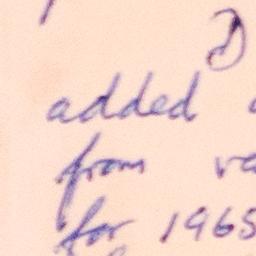 added
from
for 1965